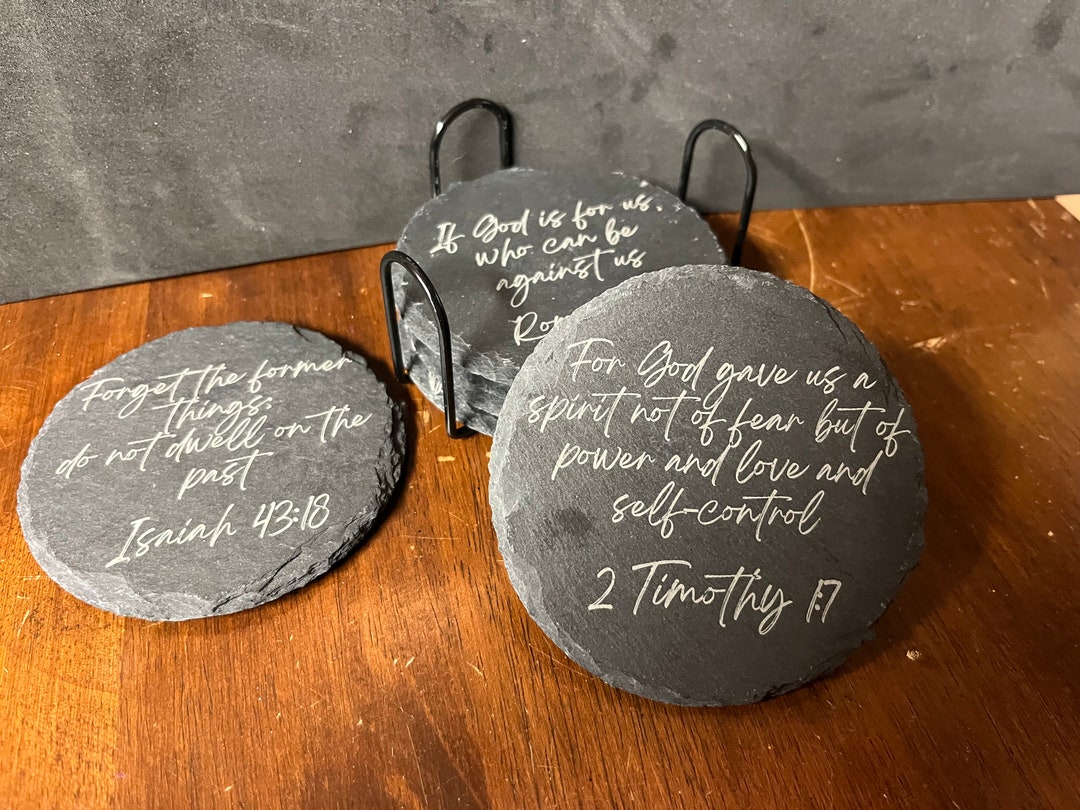 If God is for us,
who can be
against us
Forget the former
things;
do not dwell on the
past
Isaiah 43:18
For God gave us a
spirit not of fear but of
power and love and
self-control
2 Timothy 1:7